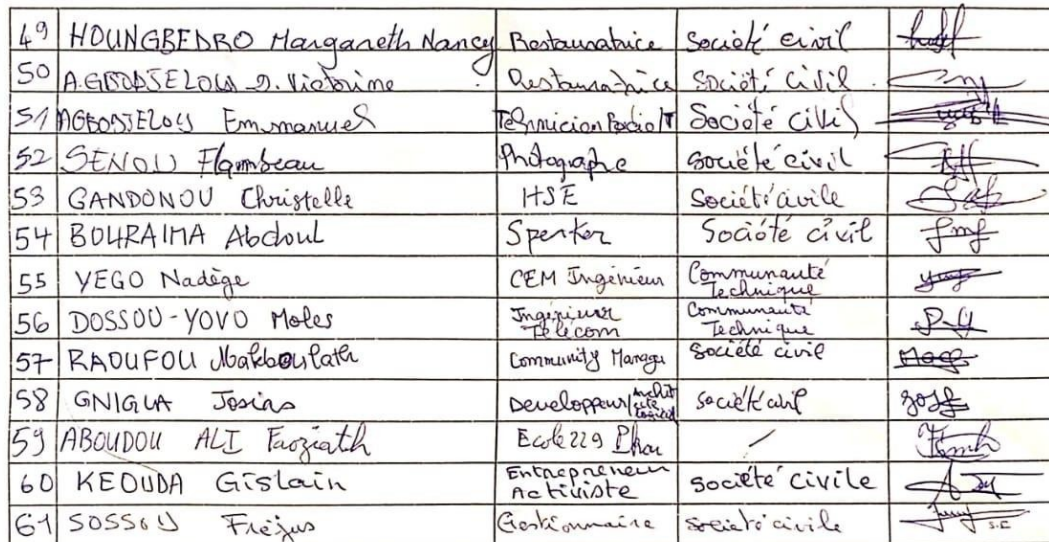 49 HOUNGBEDRO Margareth Nancy Restauratrice Société civil
50 AGBODJELOU D. Victorine Restauratrice Société civil
51 AGBODJELOU Emmanuel Technicien Radio/T Société civil
52 SENOU Flambeau Photographe Société civil
53 GANDONOU Christelle HSE Société civile
54 BOURAIMA Abdoul Société civil
55 YEGO Nadège CEM Ingénieur Communauté Technique
56 DOSSOU-YOVO Moles Ingénieur Télécom Communauté Technique
57 RAOUFOU Makboulath Community Manager Société civil
58 GNIGLA Josias Developpeur/ société civil
59 ABOUDOU ALI Faoziath Ecole 229 /
60 KEOUDA Gislain Entrepreneur Activiste société civile
61 SOSSOU Fréjus Gestionnaire société civile S.E